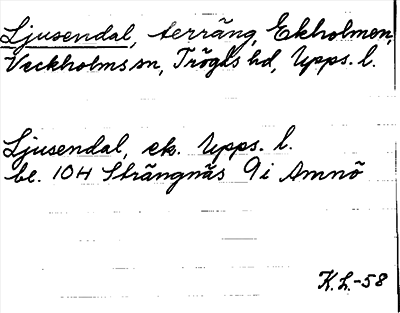 Ljusendal, terräng, Ekholmen,
Veckholms sn, Trögds hd, Upps. l.
Ljusendal, ek. Upps. l.
bl. 104 Strängnäs 9i Amnö
K.L.-58